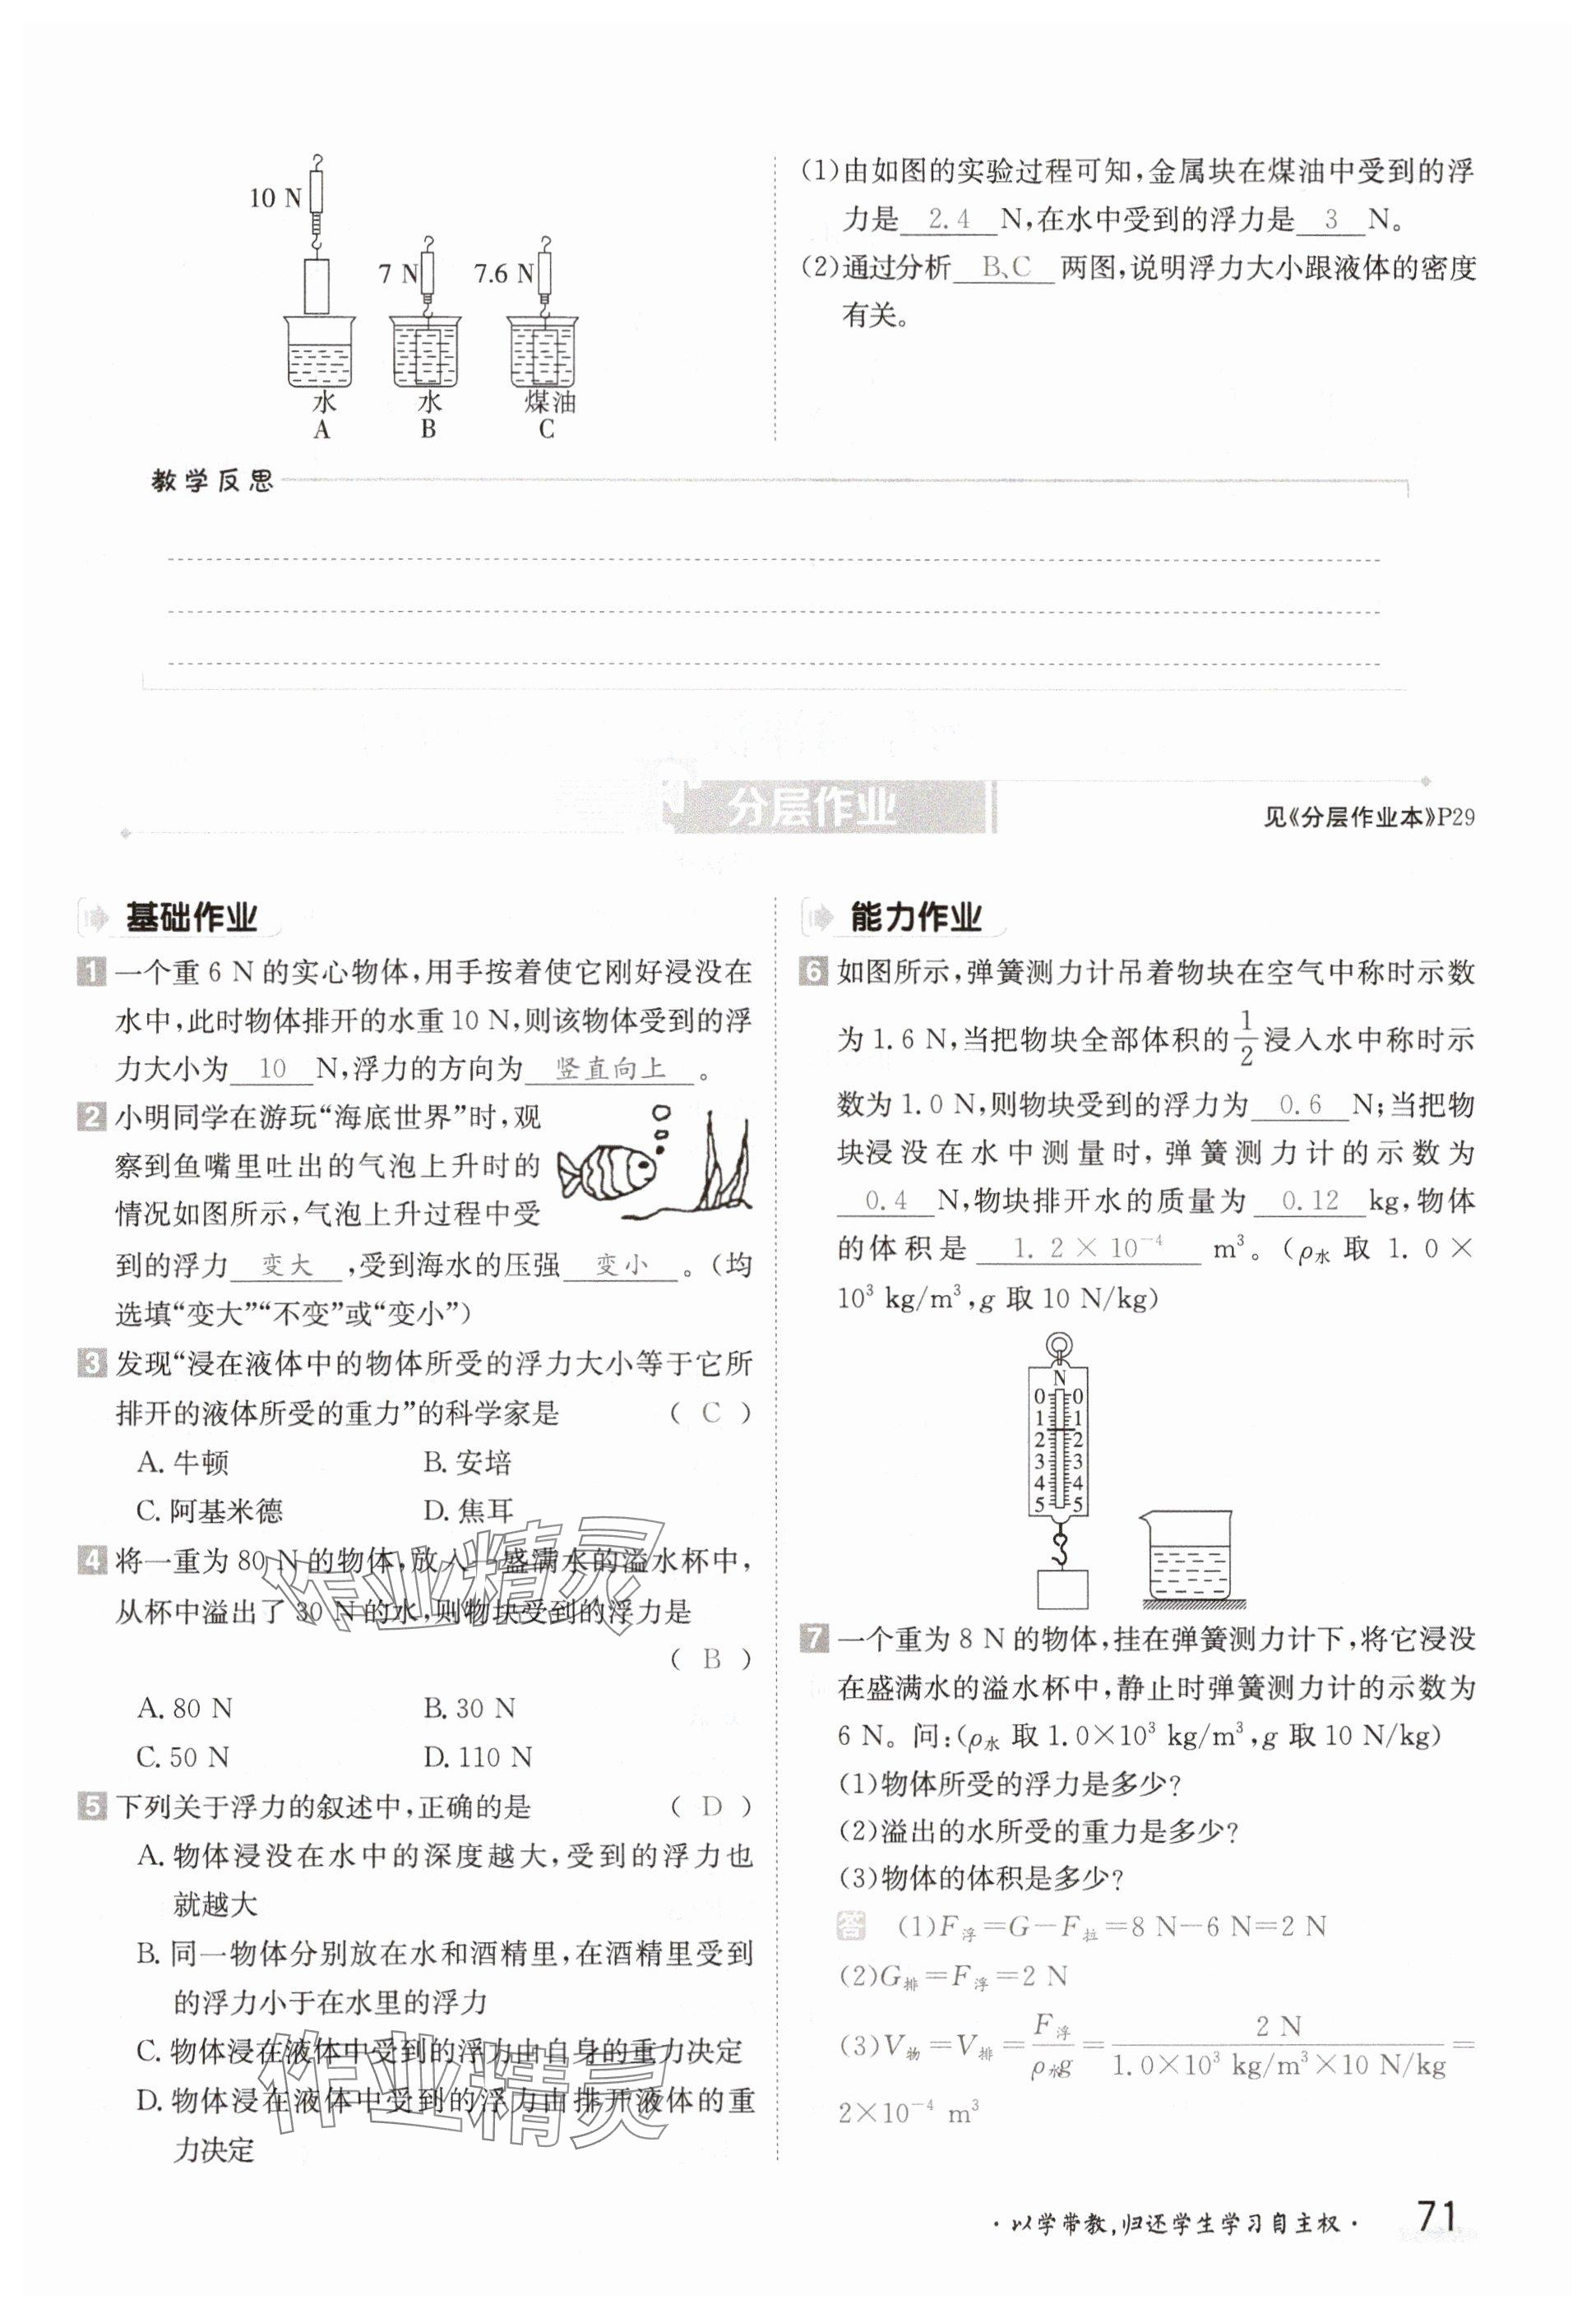 10 N
7 N
7.6 N
水
水
煤油
A
B
C
(1)由如图的实验过程可知,金属块在煤油中受到的浮
力是 2.4 N,在水中受到的浮力是 3 N。
(2)通过分析 B、C 两图,说明浮力大小跟液体的密度
有关。
教学反思
分层作业
见《分层作业本》P29
基础作业
1 一个重 6 N 的实心物体,用手按着使它刚好浸没在
水中,此时物体排开的水重 10 N,则该物体受到的浮
力大小为 10 N,浮力的方向为 竖直向上 。
2 小明同学在游玩“海底世界”时,观
察到鱼嘴里吐出的气泡上升时的
情况如图所示,气泡上升过程中受
到的浮力 变大 ,受到海水的压强 变小 。(均
选填“变大”“不变”或“变小”)
3 发现“浸在液体中的物体所受的浮力大小等于它所
排开的液体所受的重力”的科学家是 ( C )
A. 牛顿 B. 安培
C. 阿基米德 D. 焦耳
4 将一重为 80 N 的物体,放入一盛满水的溢水杯中,
从杯中溢出了 30 N 的水,则物块受到的浮力是
( B )
A. 80 N B. 30 N
C. 50 N D. 110 N
5 下列关于浮力的叙述中,正确的是 ( D )
A. 物体浸没在水中的深度越大,受到的浮力也
就越大
B. 同一物体分别放在水和酒精里,在酒精里受到
的浮力小于在水里的浮力
C. 物体浸在液体中受到的浮力由自身的重力决定
D. 物体浸在液体中受到的浮力由排开液体的重
力决定
能力作业
6 如图所示,弹簧测力计吊着物块在空气中称时示数
为 1.6 N,当把物块全部体积的 1/2 浸入水中称时示
数为 1.0 N,则物块受到的浮力为 0.6 N;当把物
块浸没在水中测量时,弹簧测力计的示数为
0.4 N,物块排开水的质量为 0.12 kg,物体
的体积是 1.2×10⁻⁴ m³。(ρ水 取 1.0×
10³ kg/m³,g 取 10 N/kg)
N
0 0
1 1
2 2
3 3
4 4
5 5
7 一个重为 8 N 的物体,挂在弹簧测力计下,将它浸没
在盛满水的溢水杯中,静止时弹簧测力计的示数为
6 N。问:(ρ水 取 1.0×10³ kg/m³,g 取 10 N/kg)
(1)物体所受的浮力是多少?
(2)溢出的水所受的重力是多少?
(3)物体的体积是多少?
答 (1)F浮=G-F拉=8 N-6 N=2 N
(2)G排=F浮=2 N
(3)V物=V排=F浮/ρ水g=2 N/1.0×10³ kg/m³×10 N/kg=
2×10⁻⁴ m³
作业精灵
作业精灵
·以学带教,归还学生学习自主权·
71